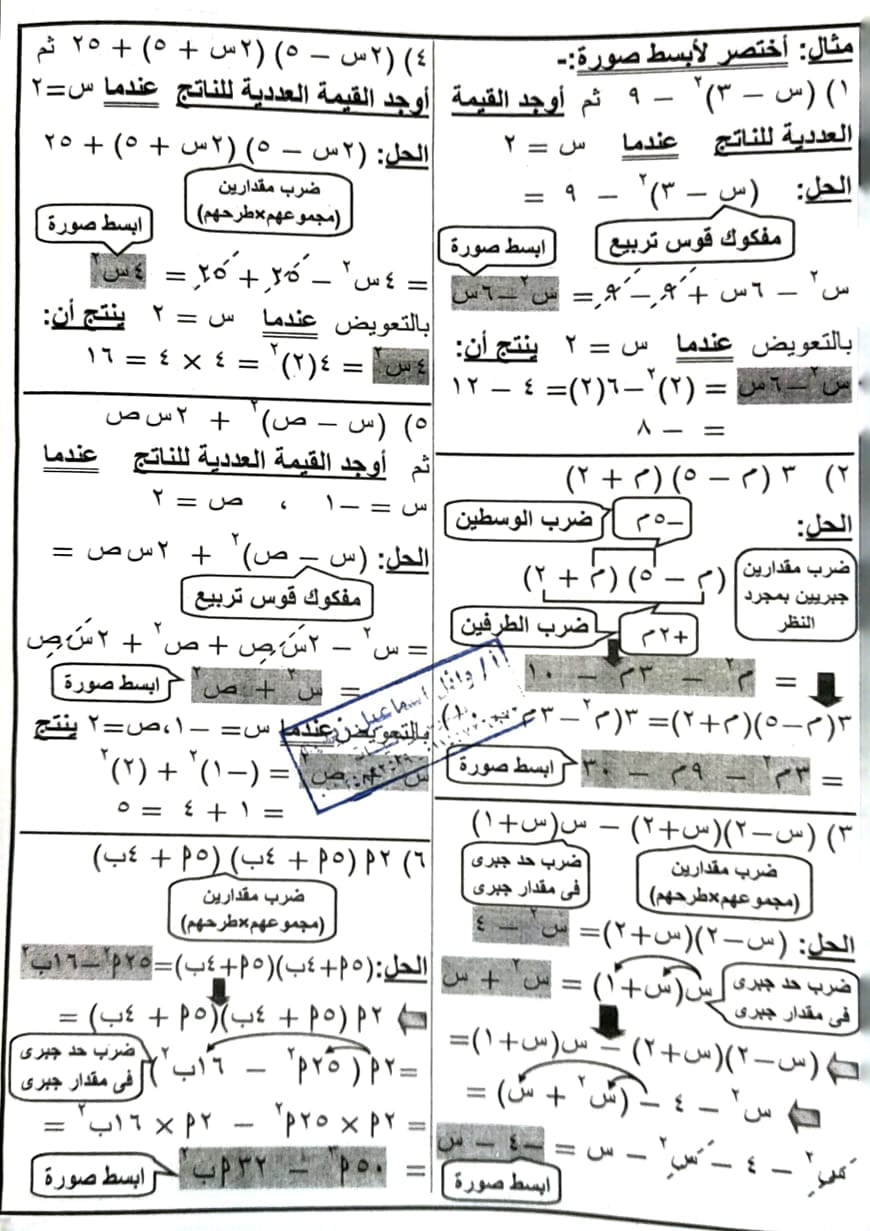 مثال: أختصر لأبسط صورة:-
١) (س – ٣)٢ – ٩ ثم أوجد القيمة
العددية للناتج عندما س = ٢
الحل: (س – ٣)٢ – ٩ =
مفكوك قوس تربيع
ابسط صورة
س٢ – ٦س + ٩ – ٩ = س٢ – ٦س
بالتعويض عندما س = ٢ ينتج أن:
س٢ – ٦س = (٢)٢ – ٦(٢) = ٤ – ١٢
= – ٨
٢) ٣ (م – ٥) (م + ٢)
الحل:
–٥م
ضرب الوسطين
ضرب مقدارين
جبريين بمجرد
النظر
(م – ٥) (م + ٢)
+٢م
ضرب الطرفين
= م٢ – ٣م – ١٠
٣(م–٥)(م+٢)= ٣(م٢–٣م
= ٣م٢ – ٩م – ٣٠
ابسط صورة
٣) (س–٢)(س+٢) – س(س+١)
ضرب مقدارين
(مجموعهم×طرحهم)
ضرب حد جبرى
فى مقدار جبرى
الحل: (س–٢)(س+٢)= س٢ – ٤
ضرب حد جبرى
فى مقدار جبرى
س(س+١) = س٢ + س
(س–٢)(س+٢) – س(س+١)=
س٢ – ٤ – (س٢ + س) =
س٢ – ٤ – س٢ – س = –٤ – س
ابسط صورة
٤) (٢س – ٥) (٢س + ٥) + ٢٥ ثم
أوجد القيمة العددية للناتج عندما س=٢
الحل: (٢س – ٥) (٢س + ٥) + ٢٥
ضرب مقدارين
(مجموعهم×طرحهم)
ابسط صورة
= ٤س٢ – ٢٥ + ٢٥ = ٤س٢
بالتعويض عندما س = ٢ ينتج أن:
٤س٢ = ٤(٢)٢ = ٤ × ٤ = ١٦
٥) (س – ص)٢ + ٢س ص
ثم أوجد القيمة العددية للناتج عندما
س = –١ ، ص = ٢
الحل: (س – ص)٢ + ٢س ص =
مفكوك قوس تربيع
= س٢ – ٢س ص + ص٢ + ٢س ص
= س٢ + ص٢
ابسط صورة
أ/ وائل اسماعيل
بالتعويض عندما س= –١،ص=٢ ينتج
= (–١)٢ + (٢)٢
= ١ + ٤ = ٥
٦) ٢م (٥م + ٤ب) (٥م + ٤ب)
ضرب مقدارين
(مجموعهم×طرحهم)
الحل:(٥م+٤ب)(٥م+٤ب)=٢٥م٢–١٦ب٢
٢م (٥م + ٤ب)(٥م + ٤ب) =
=٢م (٢٥م٢ – ١٦ب٢)
ضرب حد جبرى
فى مقدار جبرى
= ٢م × ٢٥م٢ – ٢م × ١٦ب٢ =
= ٥٠م٣ – ٣٢مب٢
ابسط صورة